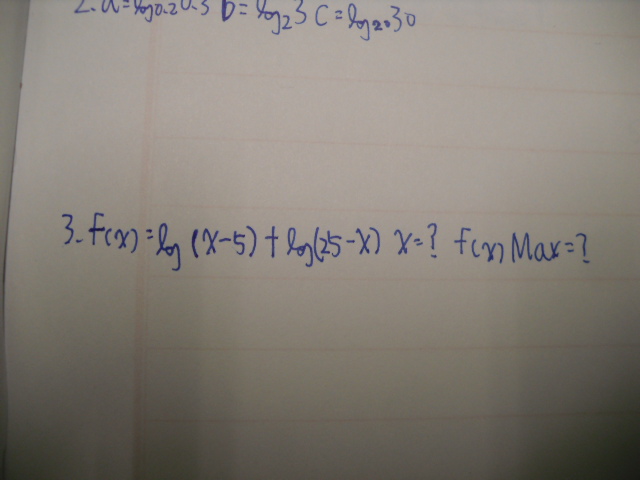 2. a=log0.20.3 b=log23 c=log2030
3. f(x)=log(x-5)+log(25-x) x=? f(x)Max=?